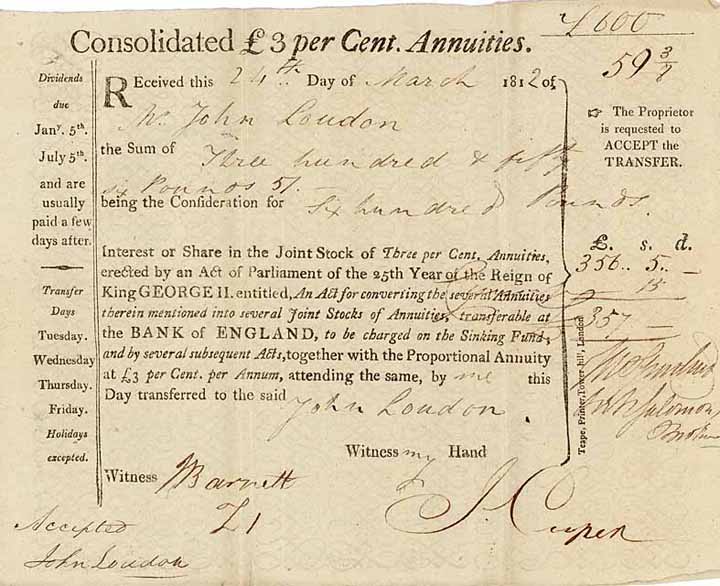 £600
Consolidated £3 per Cent. Annuities.
59 3/8
Dividends
due
Janʸ. 5th.
July 5th.
and are
usually
paid a few
days after.
Transfer
Days
Tuesday.
Wednesday
Thursday.
Friday.
Holidays
excepted.
REceived this 24th Day of March 1812 of
Mr John Loudon
the Sum of Three hundred & fifty
six Pounds 5/.
being the Consideration for Six hundred Pounds.
Interest or Share in the Joint Stock of Three per Cent. Annuities,
erected by an Act of Parliament of the 25th Year of the Reign of
King GEORGE II. entitled, An Act for converting the several Annuities
therein mentioned into several Joint Stocks of Annuities, transferable at
the BANK of ENGLAND, to be charged on the Sinking Fund;
and by several subsequent Acts, together with the Proportional Annuity
at £3 per Cent. per Annum, attending the same, by me this
Day transferred to the said
John Loudon
Witness my Hand
Witness Barnett
J. Cuper
Accepted
John Loudon
☞ The Proprietor
is requested to
ACCEPT the
TRANSFER.
£. s. d.
356.. 5.. –
15
357 –
Salomon
Broker
Teape, Printer, Tower-hill, London